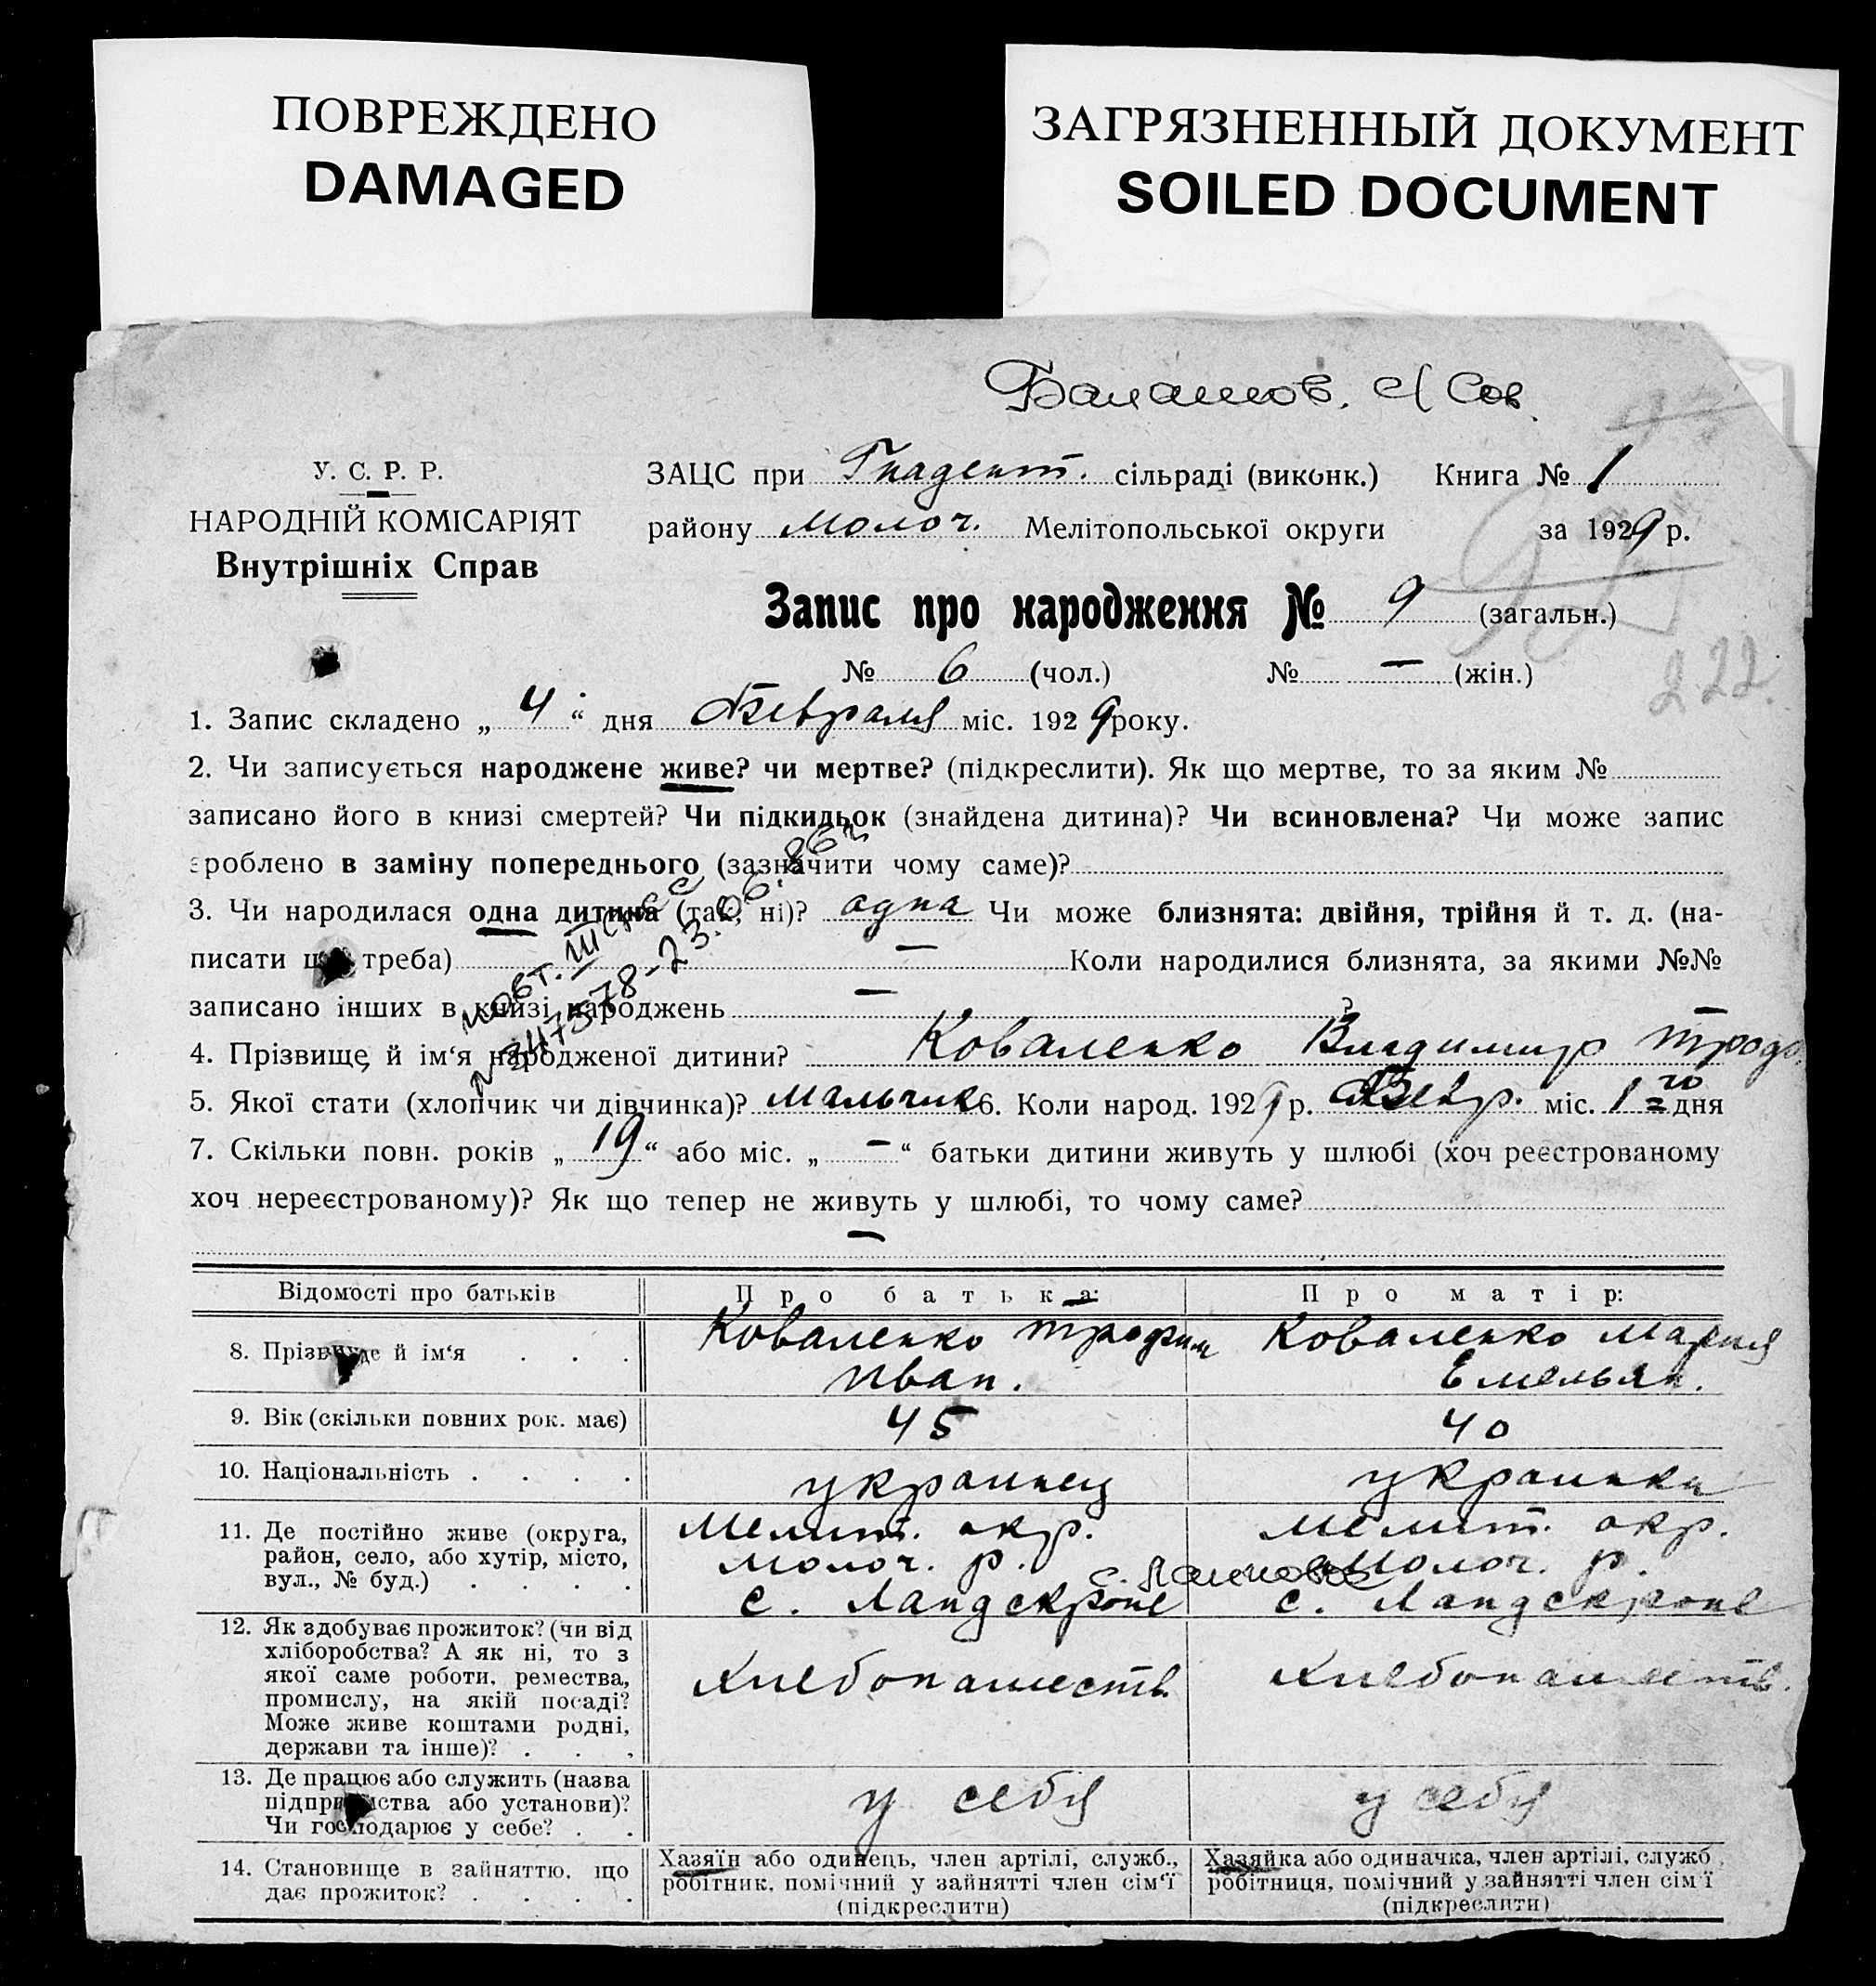 ПОВРЕЖДЕНО
DAMAGED
ЗАГРЯЗНЕННЫЙ ДОКУМЕНТ
SOILED DOCUMENT
Балашов. с/Сов.
У. С. Р. Р.
НАРОДНІЙ КОМІСАРІЯТ
Внутрішніх Справ
ЗАЦС при Гнадент. сільраді (виконк.) Книга № 1
району Молоч. Мелітопольської округи за 1929 р.
Запис про народження № 9 (загальн.)
№ 6 (чол.) № — (жін.)
222.
1. Запис складено „ 4 “ дня Февраля міс. 1929 року.
2. Чи записується народжене живе? чи мертве? (підкреслити). Як що мертве, то за яким №
записано його в книзі смертей? Чи підкидьок (знайдена дитина)? Чи всиновлена? Чи може запис
зроблено в заміну попереднього (зазначити чому саме)?
3. Чи народилася одна дитина (так, ні)? одна Чи може близнята: двійня, трійня й т. д. (на-
писати що треба) — Коли народилися близнята, за якими №№
записано інших в книзі народжень — ?
4. Прізвище й ім‘я народженої дитини? Коваленко Владимир Троф.
5. Якої стати (хлопчик чи дівчинка)? мальчик 6. Коли народ. 1929 р. Февр. міс. 1го дня
7. Скільки повн. років „ 19 “ або міс. „ — “ батьки дитини живуть у шлюбі (хоч реєстрованому
хоч нереєстрованому)? Як що тепер не живуть у шлюбі, то чому саме?
—
Відомості про батьків Про батька: Про матір:
8. Прізвище й ім‘я . . . Коваленко Трофим Коваленко Мария
Иван. Емельян.
9. Вік (скільки повних рок. має) 45 40
10. Національність . . . . украинец украинка
11. Де постійно живе (округа, район, село, або хутір, місто, вул., № буд.) . . . .
Мелит. окр. Мелит. окр.
Молоч. р. Молоч. р.
с. Ландскроне с. Ландскроне
12. Як здобуває прожиток? (чи від
хліборобства? А як ні, то з
якої саме роботи, ремества,
промислу, на якій посаді?
Може живе коштами родні,
держави та інше)? . . .
Хлебопашеств. Хлебопашеств.
13. Де працює або служить (назва
підприємства або установи)?
Чи господарює у себе? . .
у себя у себя
14. Становище в зайняттю, що
дає прожиток? . . . .
Хазяїн або одинець, член артілі, служб.,
робітник, помічний у зайнятті член сім‘ї
(підкреслити)
Хазяйка або одиначка, член артілі, служб.
робітниця, помічний у зайнятті член сім‘ї
(підкреслити)